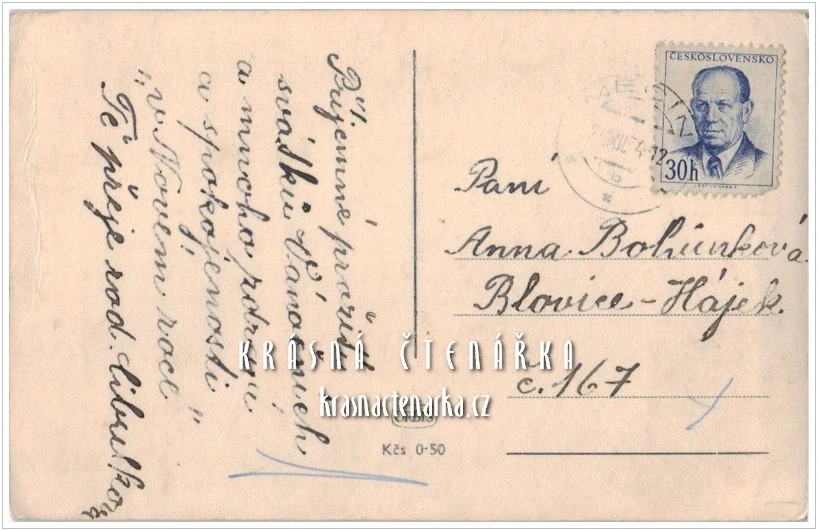 Příjemné prožití
svátků Vánočních
a mnoho zdraví
a spokojenosti
"v Novém roce"
Tě přeje rod. Cibulková
ČESKOSLOVENSKO
30h
Paní
Anna Bohunková
Blovice-Hájek.
č. 167
KRÁSNÁ ČTENÁŘKA
krasnactenarka.cz
ORBIS
Kčs 0·50